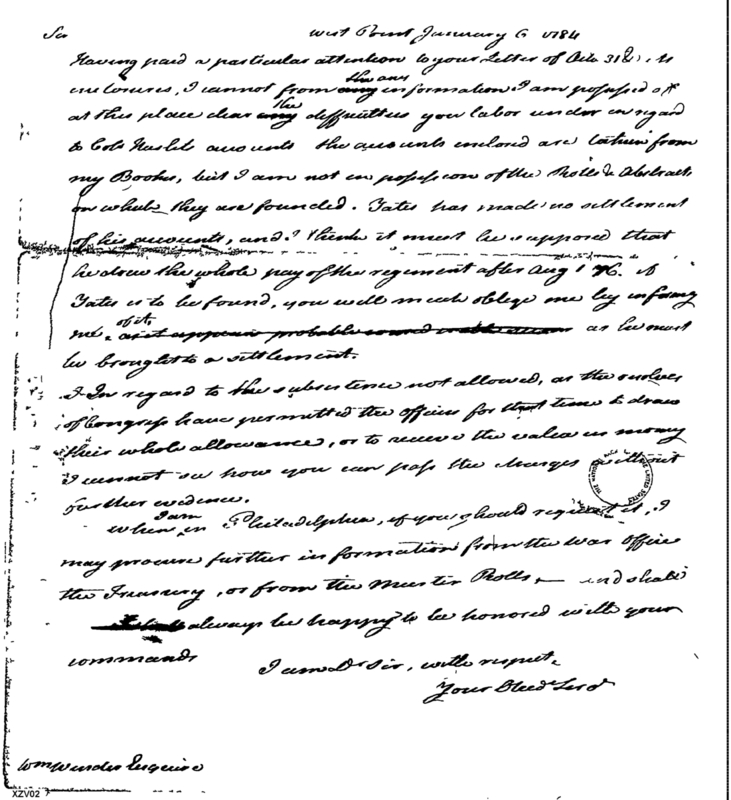 Sir West Point January 6 1784
Having paid a particular attention to your Letter of Octo 31st & its
inclosures, I cannot from the any any information I am possessed of
at this place clear the any difficulties you labor under in regard
to Cols accounts the accounts inclosed are taken from
my Books, but I am not in possession of the Rolls & Abstracts
on which they are founded. Yates has made no settlement
of his accounts, and I think it must be supposed that
he drew the whole pay of the regiment after Augt 76. if
Yates is to be found, you will much oblige me by informg
me of it, as it appears probable as he must
be brought to a settlement.
In regard to the subsistence not allowed, as the resolves
of Congress have permitted the officers for that time to draw
their whole allowance, or to receive the value in money
I cannot see how you can pass the charges without
further evidence.
when I am in Philadelphia, if you should request it, I
may procure further information from the War Office
the Treasury, or from the Muster Rolls, and shall
always be happy to be honored with your
commands
I am Dr Sir, with respect.
Your Obedt Servt
Wm Winder Esquire
XZV02